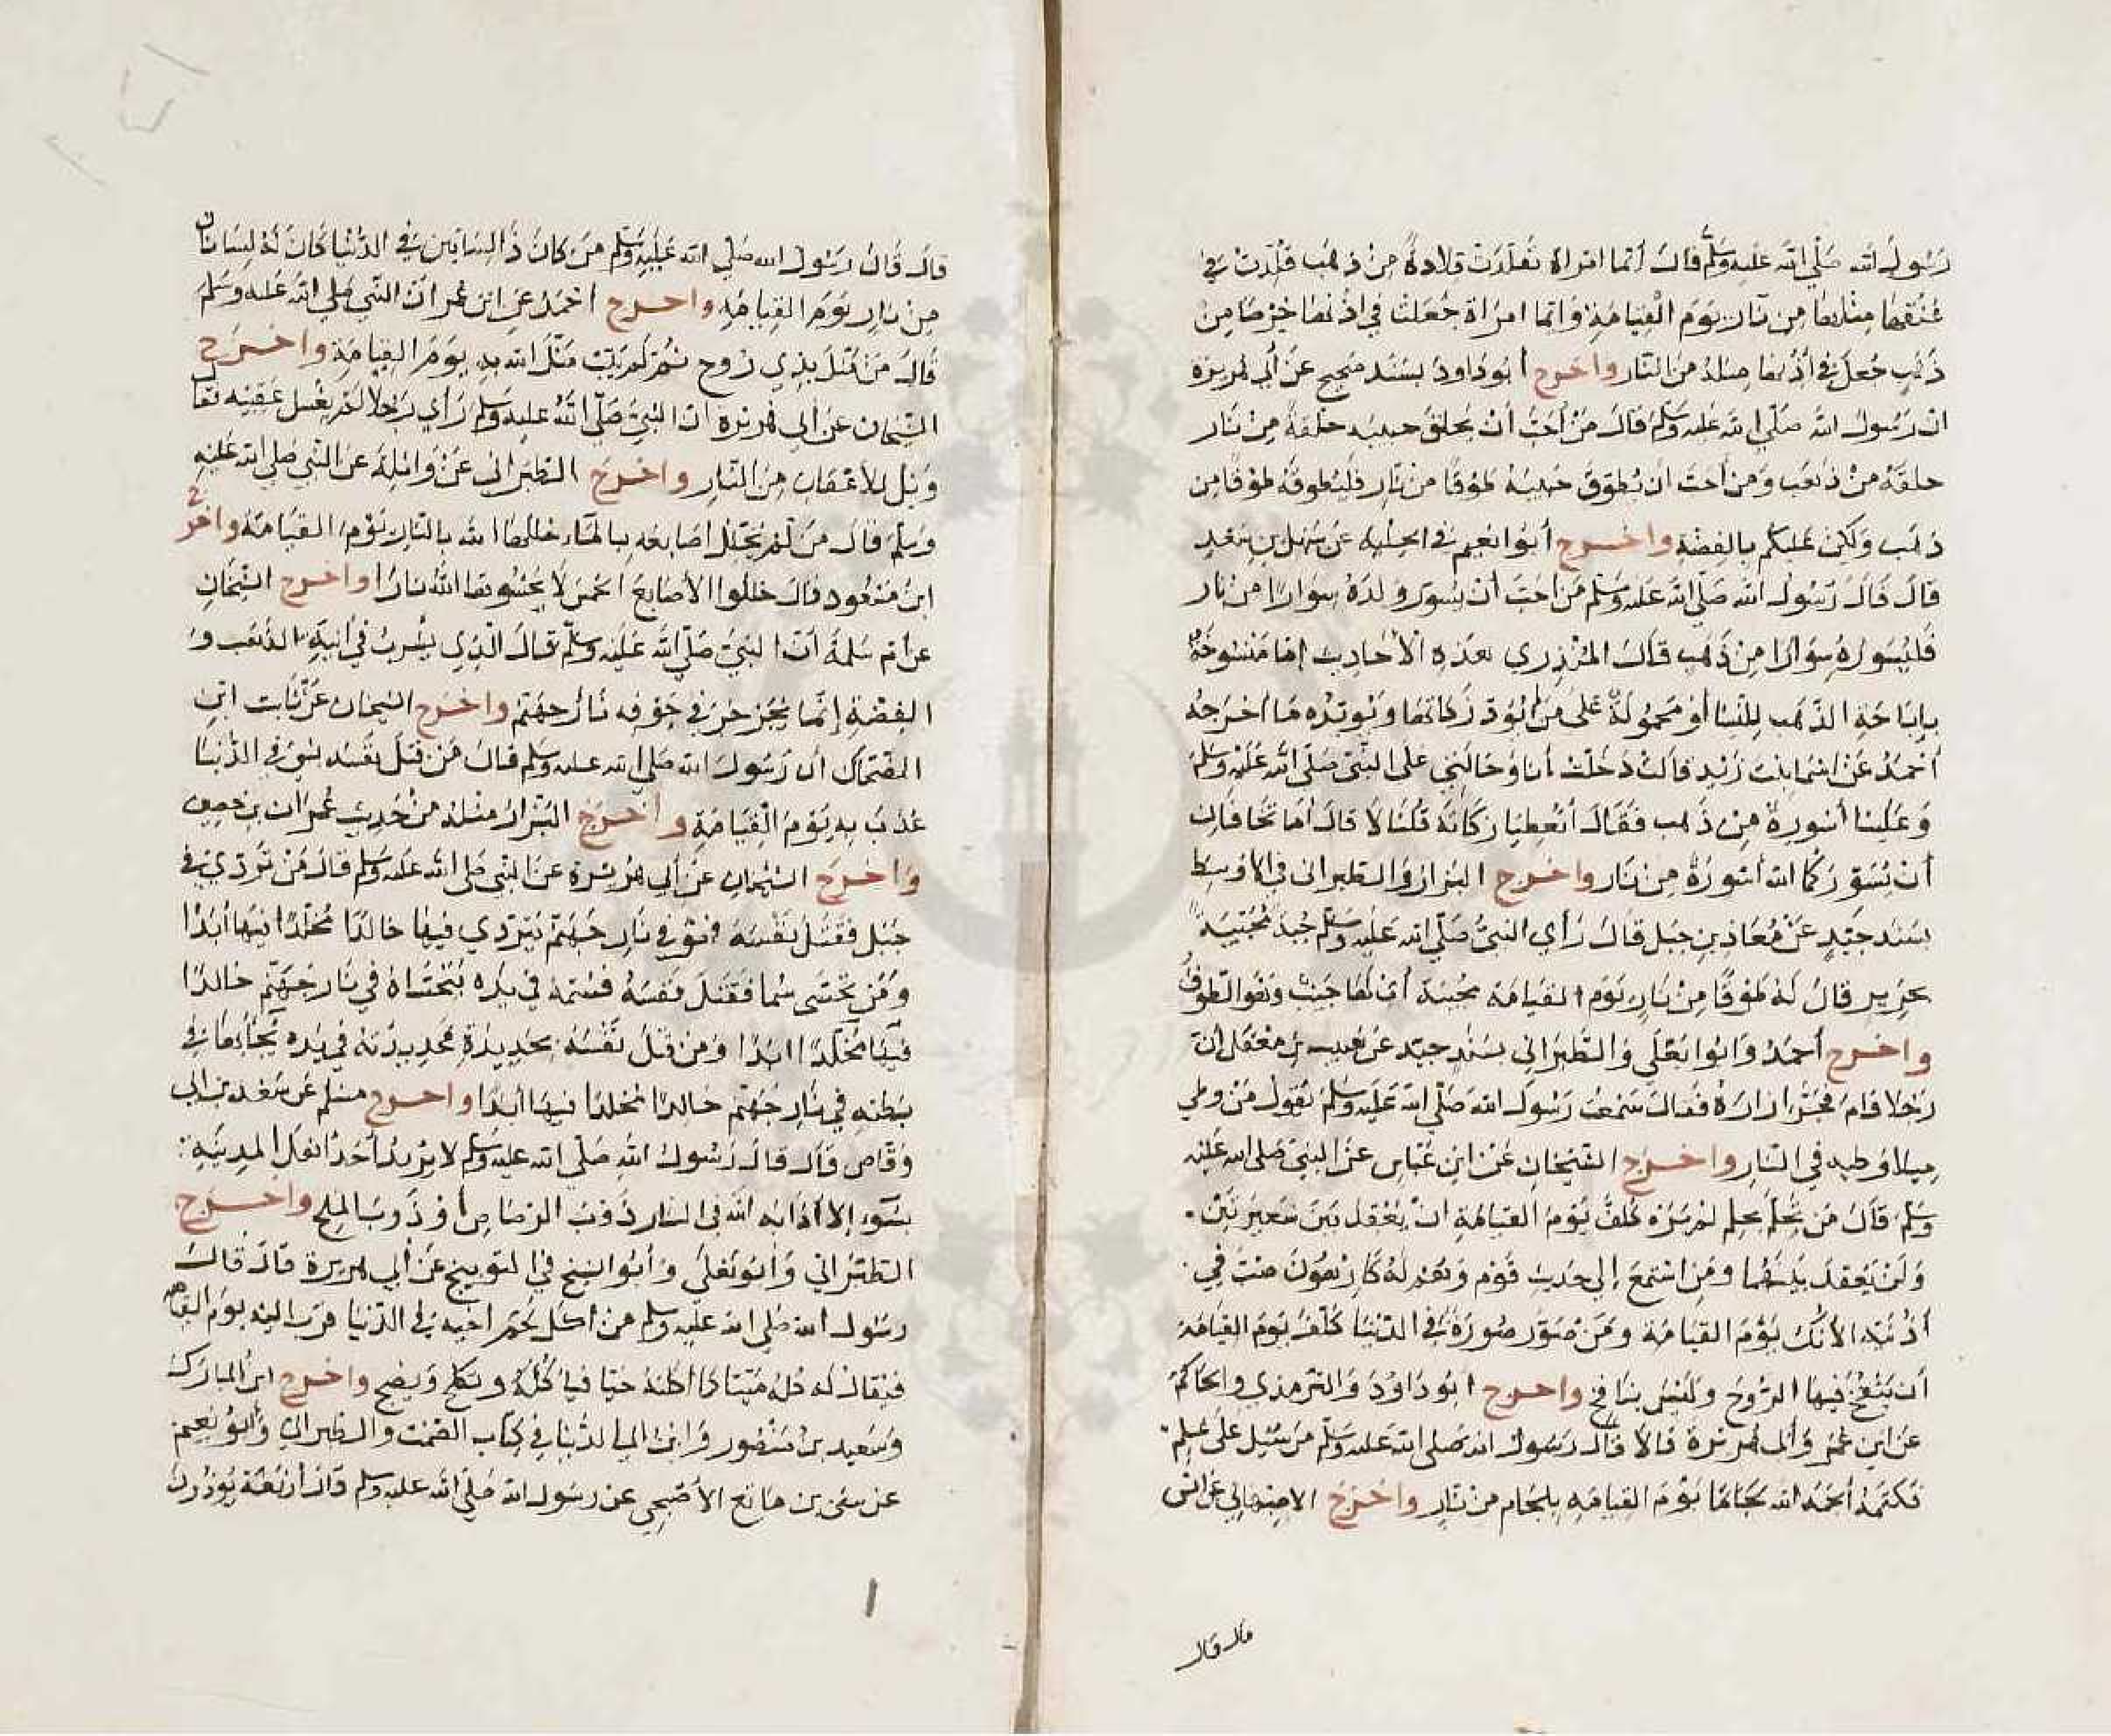 رسول الله صلى الله عليه وسلم قال أيما امراة تقلدت قلادة من ذهب قلدت في
عنقها مثلها من نار يوم القيامة وايما امراة جعلت في اذنها خرصا من
ذهب جعل في أذنها مثله من النار واخرج أبو داود بسند صحيح عن أبي هريرة
ان رسول الله صلى الله عليه وسلم قال من أحب أن يحلق حبيبه حلقة من نار
حلقة من ذهب ومن أحب ان يطوق حبيبه طوقا من نار فليطوقه طوقا من
ذهب ولكن عليكم بالفضة واخرج أبوا نعيم في الحلية عن سهل بن سعد
قال قال رسول الله صلى الله عليه وسلم من احب أن يسور ولده سوارا من نار
فليسوره سوارا من ذهب قال المنذري هذه الأحاديث إما منسوخة
بإباحة الذهب للنسا أو محمولة على من لم يود زكاتها ويويده ما اخرجه
أحمد عن اسما بنت زيد قالت دخلت أنا وخالتي على النبي صلى الله عليه وسلم
وعلينا أسورة من ذهب فقال أتعطيا زكاته قلنا لا قال أما تخافان
أن يسوركما الله أسورة من نار واخرج البزار والطبراني في الاوسط
بسند جيد عن معاذ بن جبل قال رأي النبي صلى الله عليه وسلم جبة مجيبة
بحرير قال له طوقا من نار يوم القيامة مجيبة أي لها جيب وهو الطوق
واخرج أحمد وابوا يعلى والطبراني بسند جيد عن هبيب بن مغفل ان
رجلا قام يجر ازاره فقال سمعت رسول الله صلى الله عليه وسلم يقول من وطي
خيلا وطيه في النار واخرج الشيخان عن ابن عباس عن النبي صلى الله عليه
وسلم قال من تحلم بحلم لم يره كلف يوم القيامة ان يعقد بين شعيرتين
ولن يعقد بينهما ومن استمع إلى حديث قوم وهم له كارهون صب في
أذنيه الآنك يوم القيامة ومن صور صورة في الدنيا كلف يوم القيامة
أن ينفخ فيها الروح وليس بنافخ واخرج ابو داود والترمذي والحاكم
عن ابن عمر وأبي هريرة قالا قال رسول الله صلى الله عليه وسلم من سئل على علم
فكتمه ألجمه الله لجاما يوم القيامة بلجام من نار واخرج الاصبهاني عن انس
قال قال
قال قال رسول الله صلى الله عليه وسلم من كان ذا لسانين في الدنيا كان له لسانان
من نار يوم القيامة واخرج أحمد عن ابن عمر ان النبي صلى الله عليه وسلم
قال من مثل بذي روح ثم لم يتب مثل الله به يوم القيامة واخرج
الشيخان عن أبي هريرة ان النبي صلى الله عليه وسلم رأي رجلا لم يغسل عقبيه فقال
ويل للأعقاب من النار واخرج الطبراني عن واثلة عن النبي صلى الله عليه
وسلم قال من لم يخلل اصابعه بالماء خللها الله بالنار يوم القيامة واخرج
ابن مسعود قال خللوا الأصابع الخمس لا يحشوها الله نارا واخرج الشيخان
عن أم سلمة أن النبي صلى الله عليه وسلم قال الذي يشرب في انية الذهب و
الفضة إنما يجرجر في جوفه نار جهنم واخرج الشيخان عن ثابت ابن
الضحاك ان رسول الله صلى الله عليه وسلم قال من قتل نفسه بشئ في الدنيا
عذب به يوم القيامة واخرج البزار مثله من حديث عمران بن حصين
واخرج الشيخان عن أبي هريرة عن النبي صلى الله عليه وسلم قال من تردي في
جبل فقتل نفسه فهو في نار جهنم يتردي فيها خالدا مخلدا فيها أبدا
ومن تحسى سما فقتل نفسه فسمه في يده يتحساه في نار جهنم خالدا
فيها مخلدا ابدا ومن قتل نفسه بحديدة فحديدته في يده يجأ بها في
بطنه في نار جهنم خالدا مخلدا فيها أبدا واخرج مسلم عن سعد بن أبي
وقاص قال قال رسول الله صلى الله عليه وسلم لا يريد أحد أهل المدينة
بسوء إلا أذابه الله في النار ذوب الرصاص أو ذوب الملح واخرج
الطبراني وأبو يعلى وأبوا الشيخ في التوبيخ عن أبي هريرة قال قال
رسول الله صلى الله عليه وسلم من أكل لحم اخيه في الدنيا قرب اليه يوم القيامة
فيقال له كله ميتا كما اكلته حيا فيأكله ويكلح ويضج واخرج ابن المبارك
وسعيد بن منصور وابن ابي الدنيا في كتاب الصمت والطبراني وأبو نعيم
عن شفي بن ماتع الأصبحي عن رسول الله صلى الله عليه وسلم قال أربعة يوذون